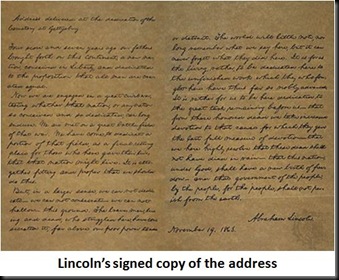 Address delivered at the dedication of the
Cemetery at Gettysburg.
Four score and seven years ago our fathers
brought forth on this continent, a new na-
tion, conceived in Liberty, and dedicated
to the proposition that all men are cre-
ated equal.
Now we are engaged in a great civil war,
testing whether that nation, or any nation
so conceived and so dedicated, can long
endure. We are met on a great battle-field
of that war. We have come to dedicate a
portion of that field, as a final resting
place for those who here gave their lives
that that nation might live. It is alto-
gether fitting and proper that we should
do this.
But, in a larger sense, we can not dedi-
cate— we can not consecrate— we can not
hallow— this ground. The brave men, liv-
ing and dead, who struggled here have con-
secrated it, far above our poor power
or detract. The world will little note, nor
long remember what we say here, but it can
never forget what they did here. It is for us
the living, rather, to be dedicated here to
the unfinished work which they who fou-
ght here have thus far so nobly advanced.
It is rather for us to be here dedicated to
the great task remaining before us— that
from these honored dead we take increased
devotion to that cause for which they gave
the last full measure of devotion— that
we here highly resolve that these dead shall
not have died in vain— that this nation,
under God, shall have a new birth of free-
dom— and that government of the people,
by the people, for the people, shall not per-
ish from the earth.
Abraham Lincoln
November 19, 1863.
Lincoln's signed copy of the address